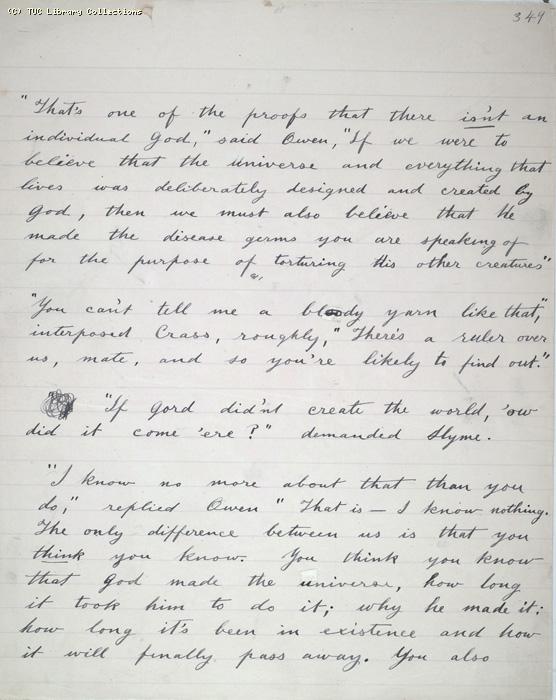 (C) TUC Library Collections
349
"That's one of the proofs that there isn't an
individual God," said Owen, "If we were to
believe that the universe and everything that
lives was deliberately designed and created by
God, then we must also believe that He
made the disease germs you are speaking of
for the purpose of torturing His other creatures"
"You can't tell me a bloody yarn like that,"
interposed Crass, roughly, "There's a ruler over
us, mate, and so you're likely to find out."
"If Gord did'nt create the world, 'ow
did it come 'ere?" demanded Slyme.
"I know no more about that than you
do," replied Owen "That is — I know nothing.
The only difference between us is that you
think you know. You think you know
that God made the universe, how long
it took him to do it; why he made it;
how long it's been in existence and how
it will finally pass away. You also